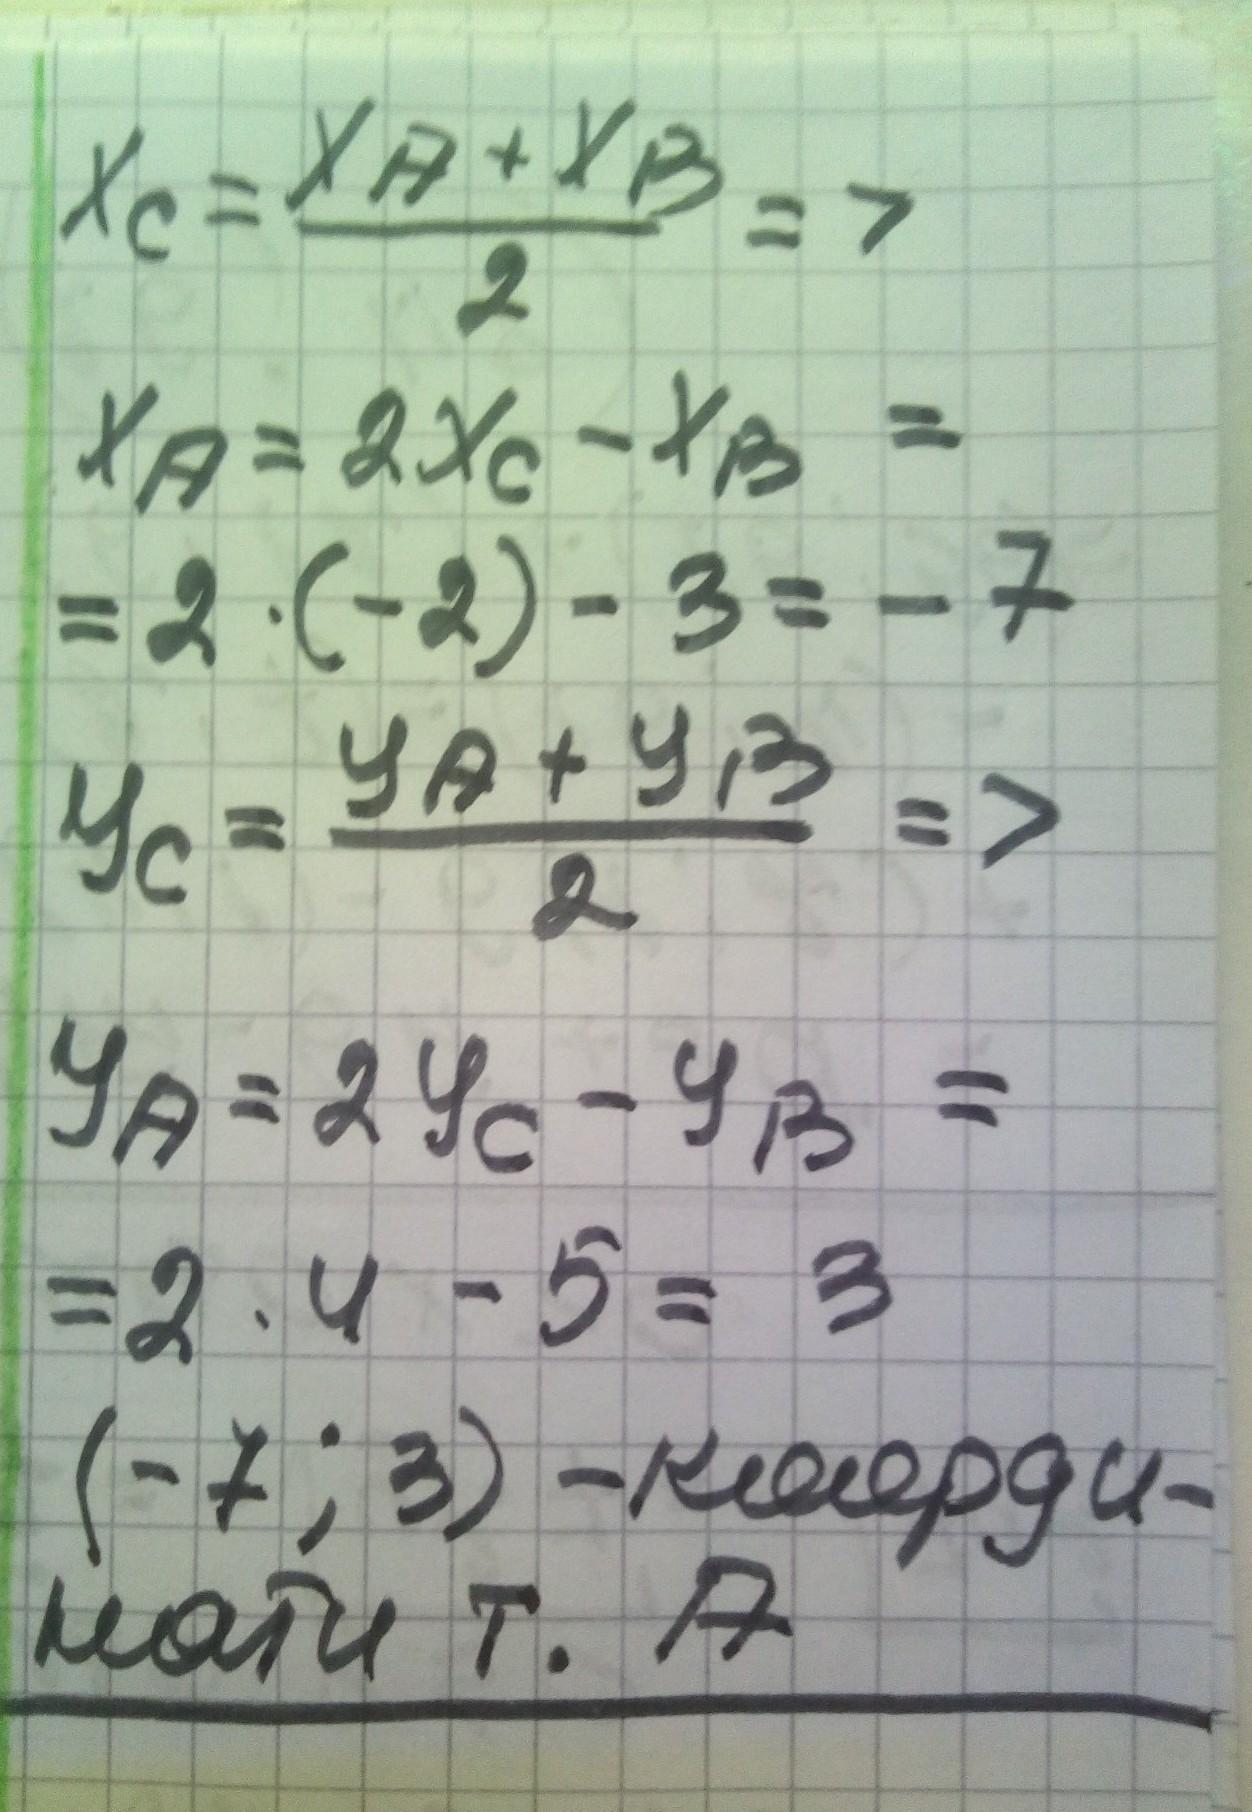 xC = (xA + xB)/2 =>
xA = 2xC - xB =
= 2 · (-2) - 3 = - 7
yC = (yA + yB)/2 =>
yA = 2yC - yB =
= 2 · 4 - 5 = 3
(-7; 3) - коорди-
нати т. А